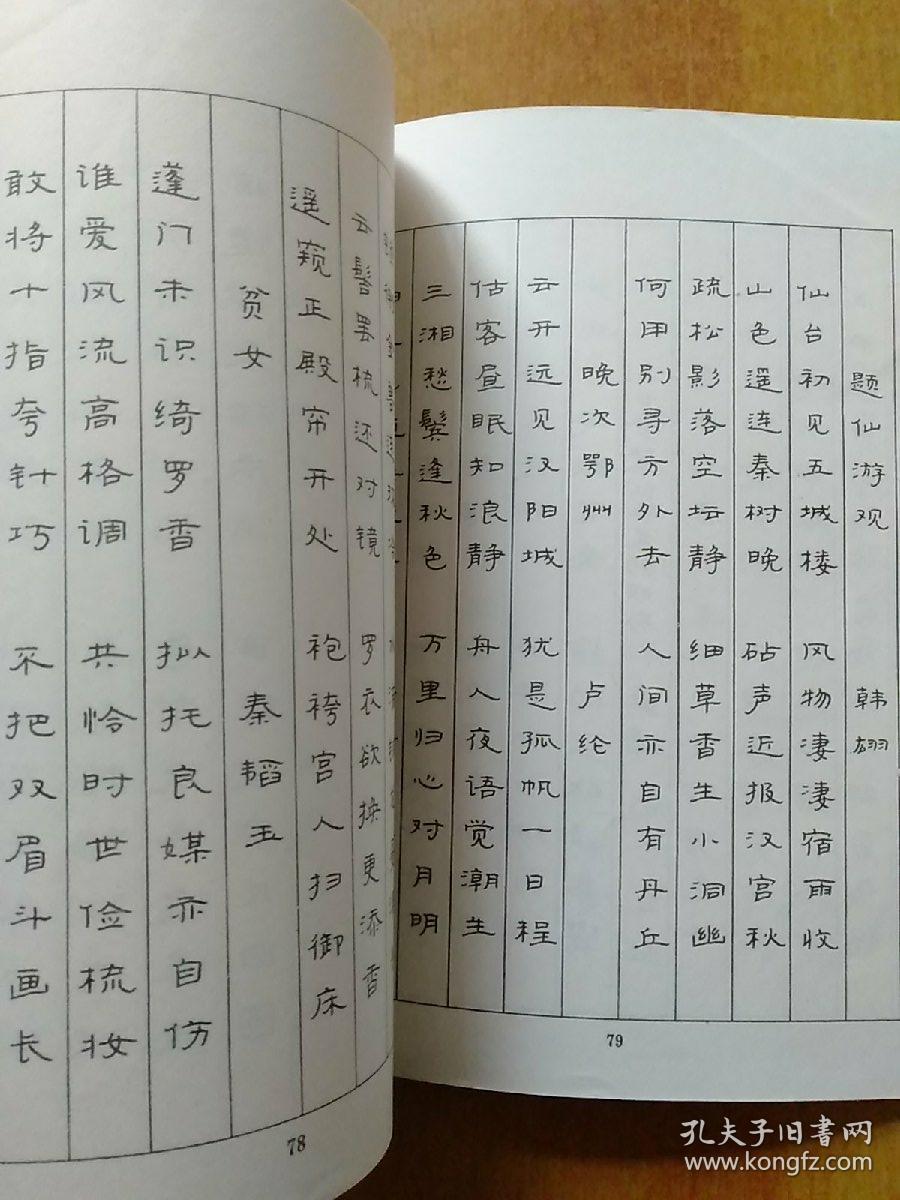 云髻罢梳还对镜 罗衣欲换更添香
遥窥正殿帘开处 袍袴宫人扫御床
贫女 秦韬玉
蓬门未识绮罗香 拟托良媒亦自伤
谁爱风流高格调 共怜时世俭梳妆
敢将十指夸针巧 不把双眉斗画长
78
题仙游观 韩翃
仙台初见五城楼 风物凄凄宿雨收
山色遥连秦树晚 砧声近报汉宫秋
疏松影落空坛静 细草香生小洞幽
何用别寻方外去 人间亦自有丹丘
晚次鄂州 卢纶
云开远见汉阳城 犹是孤帆一日程
估客昼眠知浪静 舟人夜语觉潮生
三湘愁鬓逢秋色 万里归心对月明
79
孔夫子旧书网
www.kongfz.com